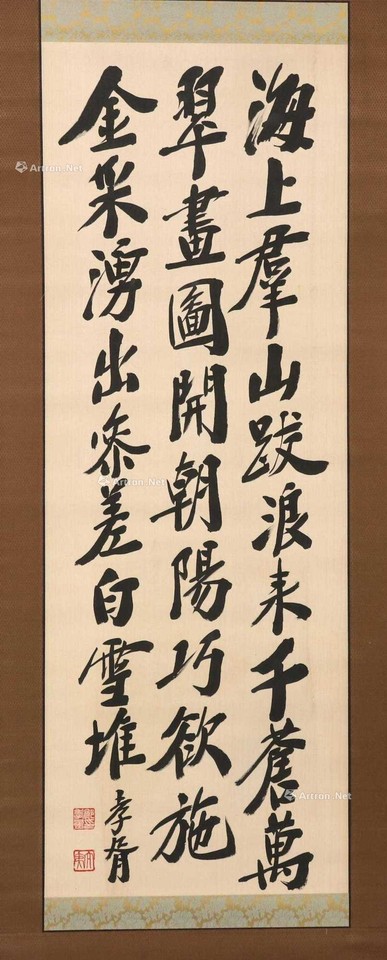 海上羣山跋浪来千蒼萬
翠畫圖開朝陽巧欲施
金采湧出叅差白雪堆
孝胥
Artron.Net
Artron.Net
Artron.Net